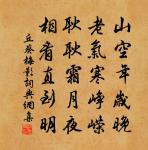 山空年歲晚
老氣寒崢嶸
耿耿霜月夜
相看直到明
丘葵梅影詞典網集